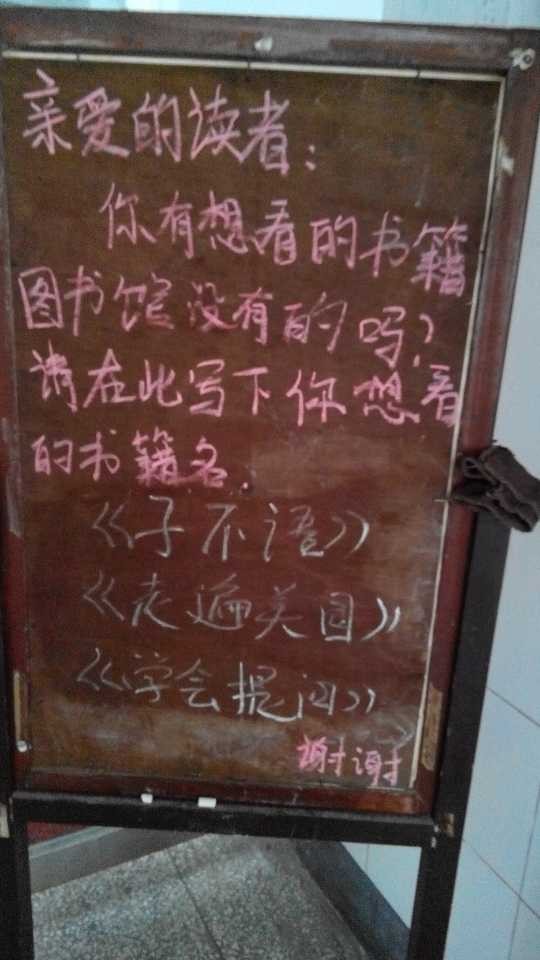 亲爱的读者:
你有想看的书籍
图书馆没有的吗?
请在此写下你想看
的书籍名.
《子不语》
《走遍美国》
《学会提问》
谢谢